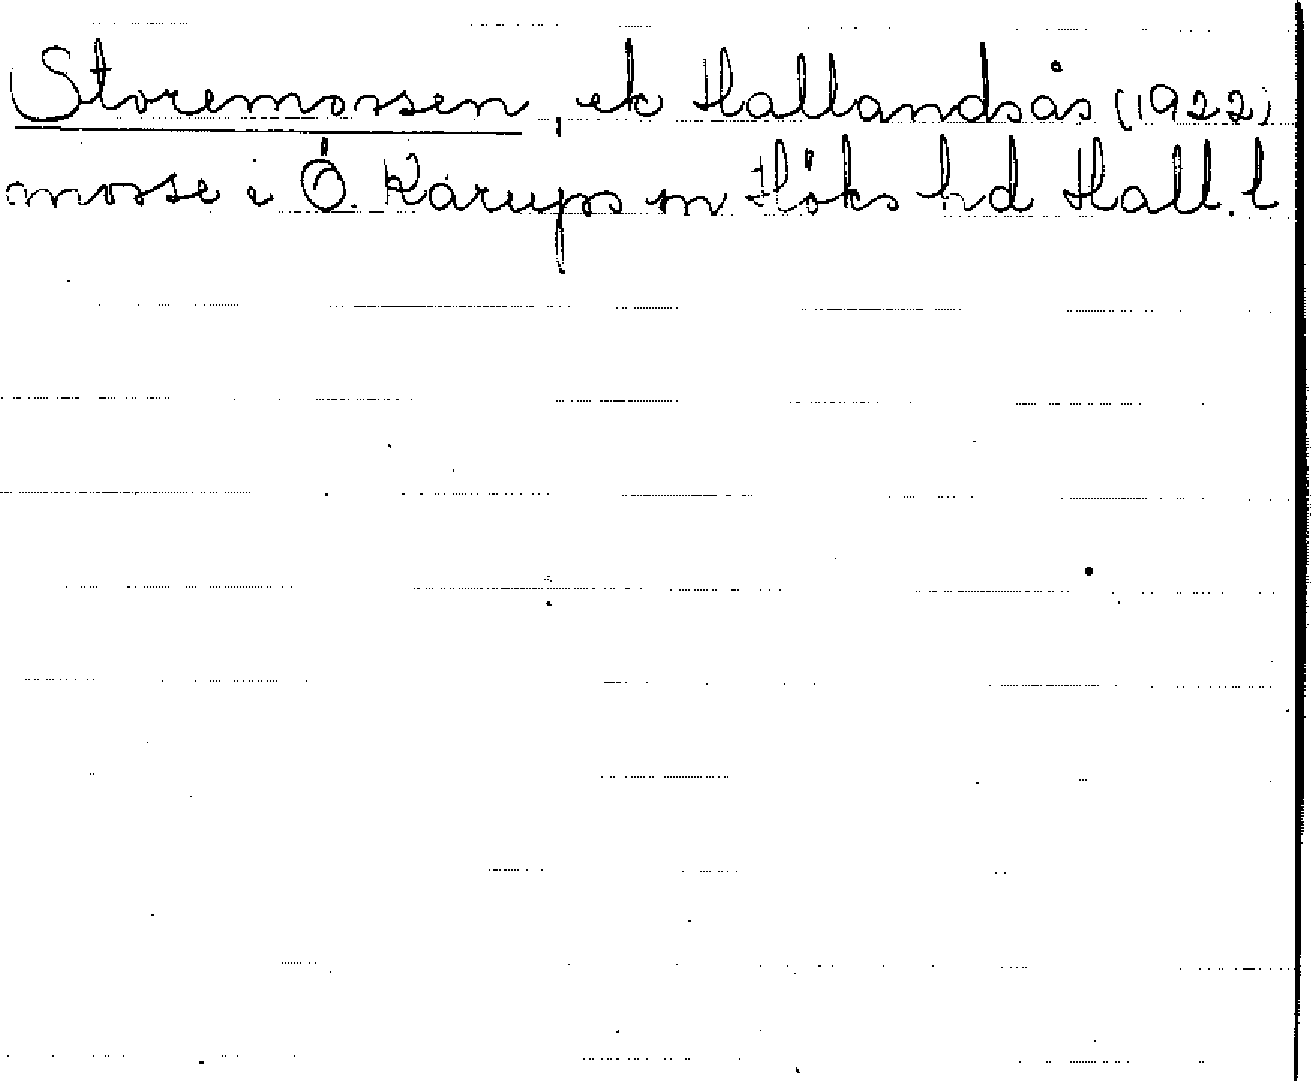 Storemossen, ek Hallandsås (1922)
mosse i Ö. Karups sn Höks hd Hall. l